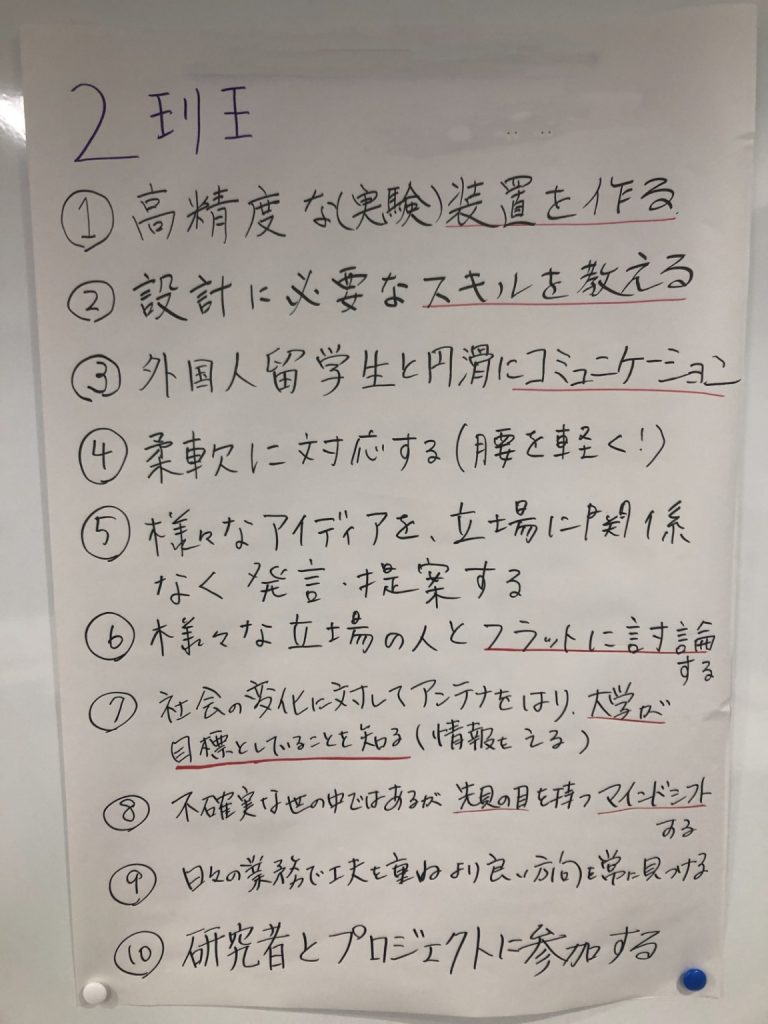 2 班
① 高精度な(実験)装置を作る
② 設計に必要なスキルを教える
③ 外国人留学生と円滑にコミュニケーション
④ 柔軟に対応する(腰を軽く!)
⑤ 様々なアイディアを、立場に関係
なく発言・提案する
⑥ 様々な立場の人とフラットに討論
する
⑦ 社会の変化に対してアンテナをはり、大学が
目標としていることを知る(情報をえる)
⑧ 不確実な世の中ではあるが先見の目を持つマインドシフト
する
⑨ 日々の業務で工夫を重ねより良い方向を常に見つける
⑩ 研究者とプロジェクトに参加する